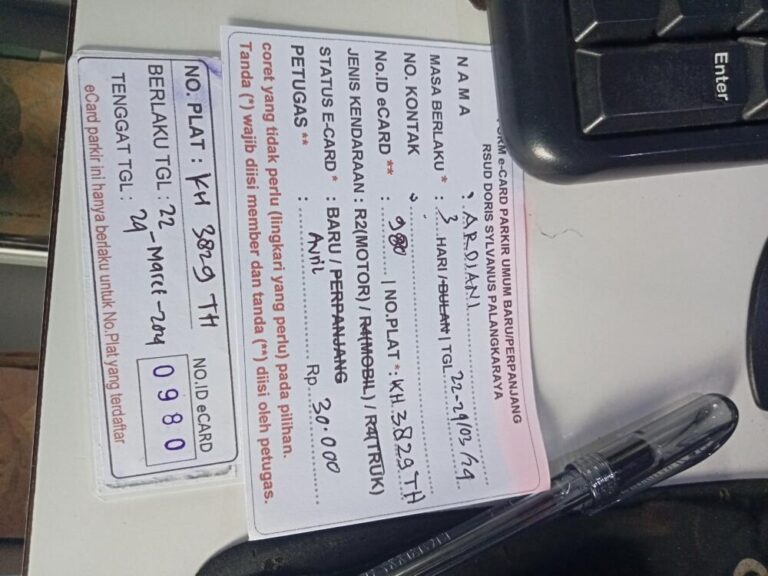 FORM e-CARD PARKIR UMUM BARU/PERPANJANG
RSUD DORIS SYLVANUS PALANGKARAYA
NAMA : ARDIANI
MASA BERLAKU * : 3 HARI / BULAN | TGL. 22-24/03/24
NO. KONTAK :
No.ID eCARD ** : 980 | NO.PLAT * : KH 3829 TH
JENIS KENDARAAN : R2(MOTOR) / R4(MOBIL) / R4(TRUK)
STATUS E-CARD * : BARU / PERPANJANG Rp. 30.000
PETUGAS ** : Avril
coret yang tidak perlu (lingkari yang perlu) pada pilihan.
Tanda (*) wajib diisi member dan tanda (**) diisi oleh petugas.
NO. PLAT : KH 3829 TH NO.ID eCARD
BERLAKU TGL : 22 0980
TENGGAT TGL : 24-Maret-2024
eCard parkir ini hanya berlaku untuk No.Plat yang terdaftar
Enter